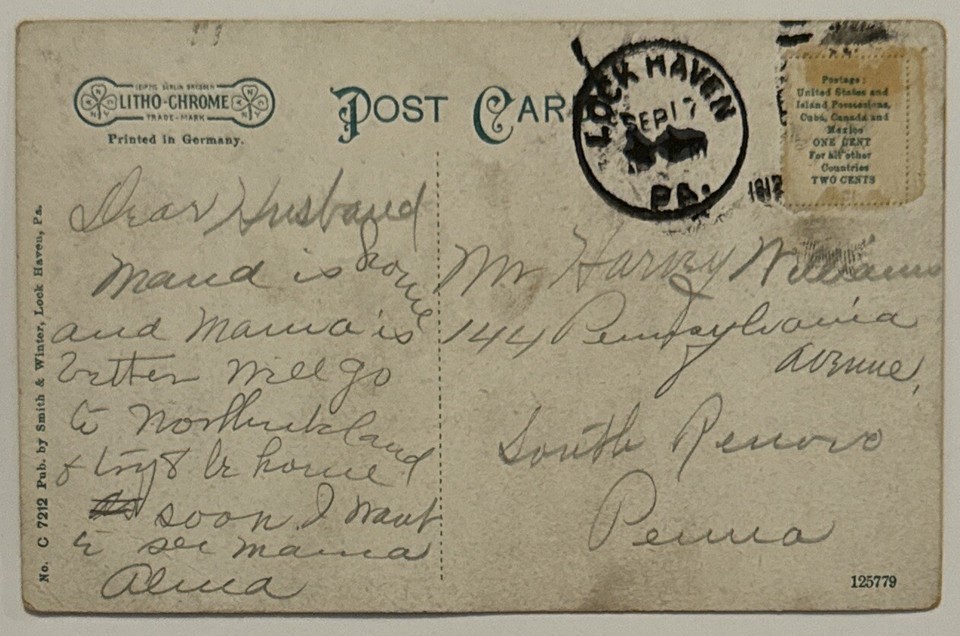 LEIPZIG BERLIN DRESDEN
LITHO-CHROME
TRADE-MARK
Printed in Germany.
POST CAR
LOCK HAVEN
SEP 17
PA.
1912
Postage:
United States and
Island Possessions,
Cuba, Canada and
Mexico
ONE CENT
For all other
Countries
TWO CENTS
No. C 7212 Pub. by Smith & Winter, Lock Haven, Pa.
Dear Husband
Maud is home
and Mama is
better Will go
to
& try & be home
soon I want
to see mama
Alma
Mr Harvey Williams
144 Pennsylvania
Avenue,
South Renovo
Penna
125779